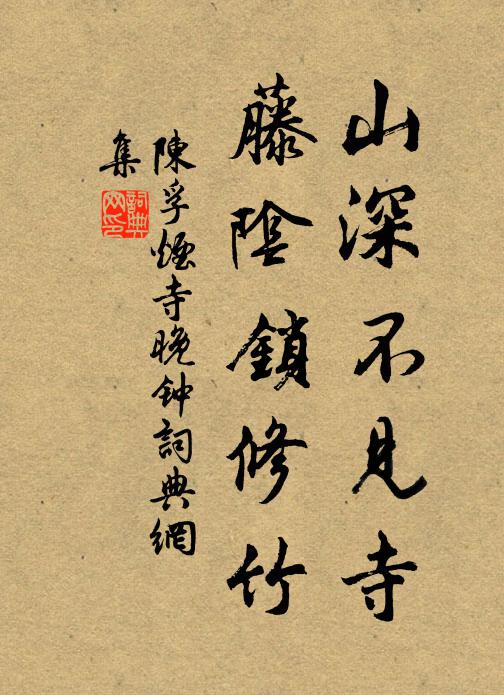 山深不見寺
藤陰鎖修竹
陳孚煙寺晚钟詞典網
集
詞典网印